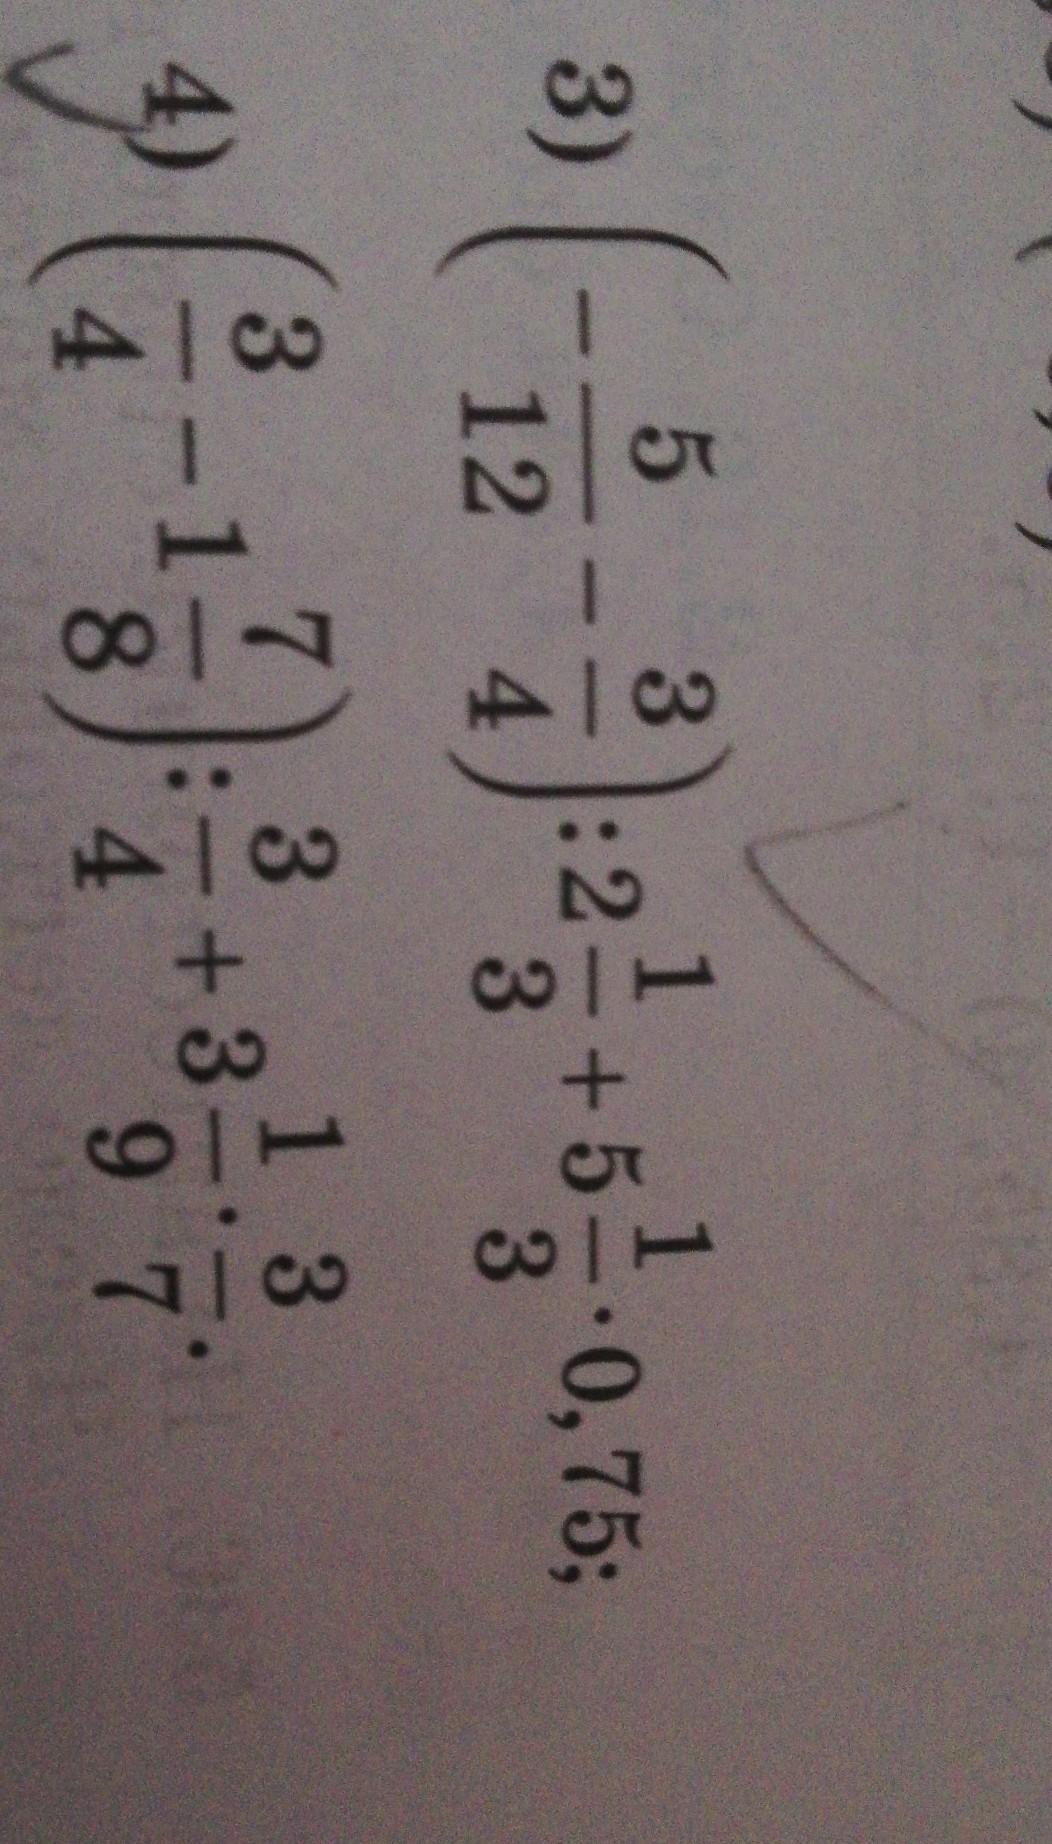 3) (-5/12 - 3/4) : 2 1/3 + 5 1/3 · 0,75;
4) (3/4 - 1 7/8) : 3/4 + 3 1/9 · 3/7.